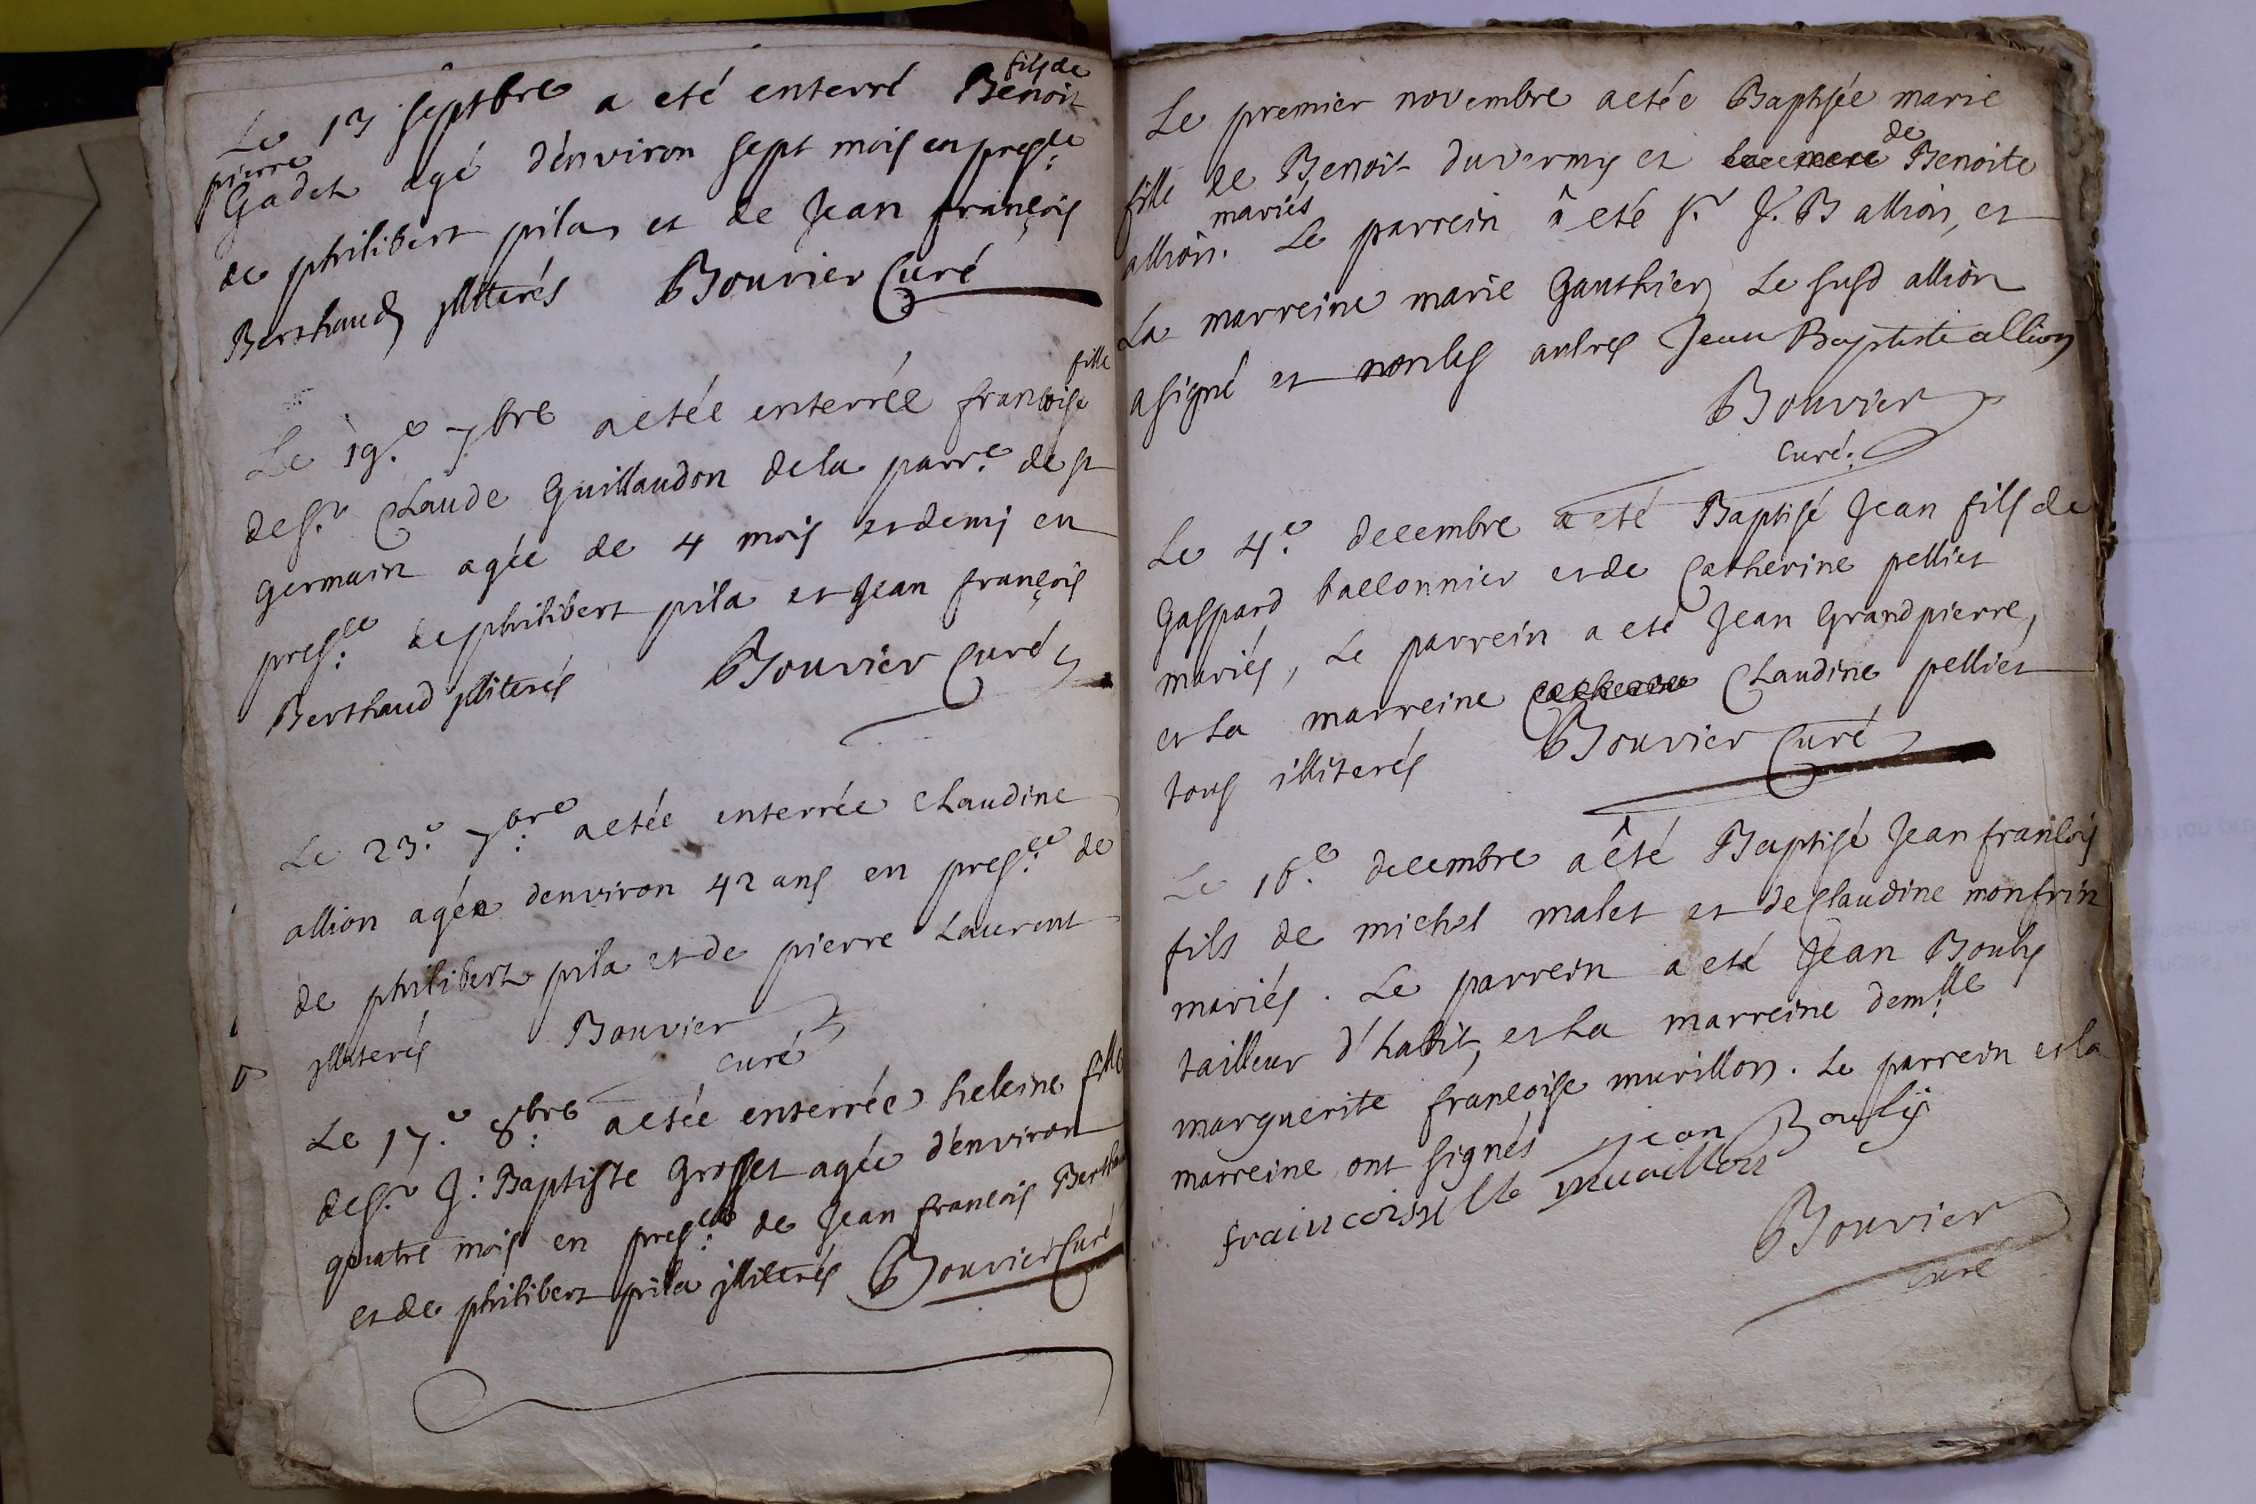 Le 13 septbre a eté enterré Benoit fils de
pierre Gadet agé d'environ sept mois en presce
de philibert pila et de Jean françois
Berthaud jlliterés Bouvier Curé
Le 19.e 7.bre a etée enterrée francoise fille
de sr. Claude Guillaudon de la parr.e de st
germain agée de 4 mois et demi en
presce de philibert pila et Jean françois
Berthaud jlliterés Bouvier Curé
Le 23.e 7bre a etée enterrée Claudine
allion agée denviron 42 ans en presce. de
de philibert pila et de pierre Laurent
jlliterés Bouvier
curé
Le 17.e 8bre a etée enterrée heleine fille
de sr. J: Baptiste Grosset agée d'environ
quatre mois en presce de Jean francois Berthau
et de philibert pila jlliterés Bouvier Curé
Le premier novembre a etée Baptisée marie
fille de Benoit duvermy et de Benoite
allion. mariés Le parrein â eté sr. J. B allion, et
La marreine marie Gauthier, Le susd allion
a signé et non les autres Jean Baptiste allion
Bouvier
curé.
Le 4.e decembre a eté Baptisé Jean fils de
Gaspard ballonnier et de Catherine pelliet
mariés, Le parrein a eté Jean Grandpierre,
et La marreine Claudine pelliet
tous illiterés Bouvier Curé
Le 16.e decembre a êté Baptisé Jean francois
fils de michel malet et de Claudine monfrin
mariés. Le parrein a eté Jean Bouly
tailleur d'habit, et La marreine dem.lle
marguerite françoise murillon. Le parrein et la
marreine ont signés Jean Bouly
Bouvier
curé